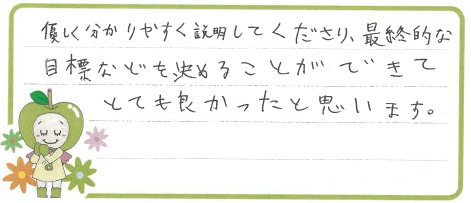 優しく分かりやすく説明してくださり、最終的な
目標などを決めることができて
とても良かったと思います。